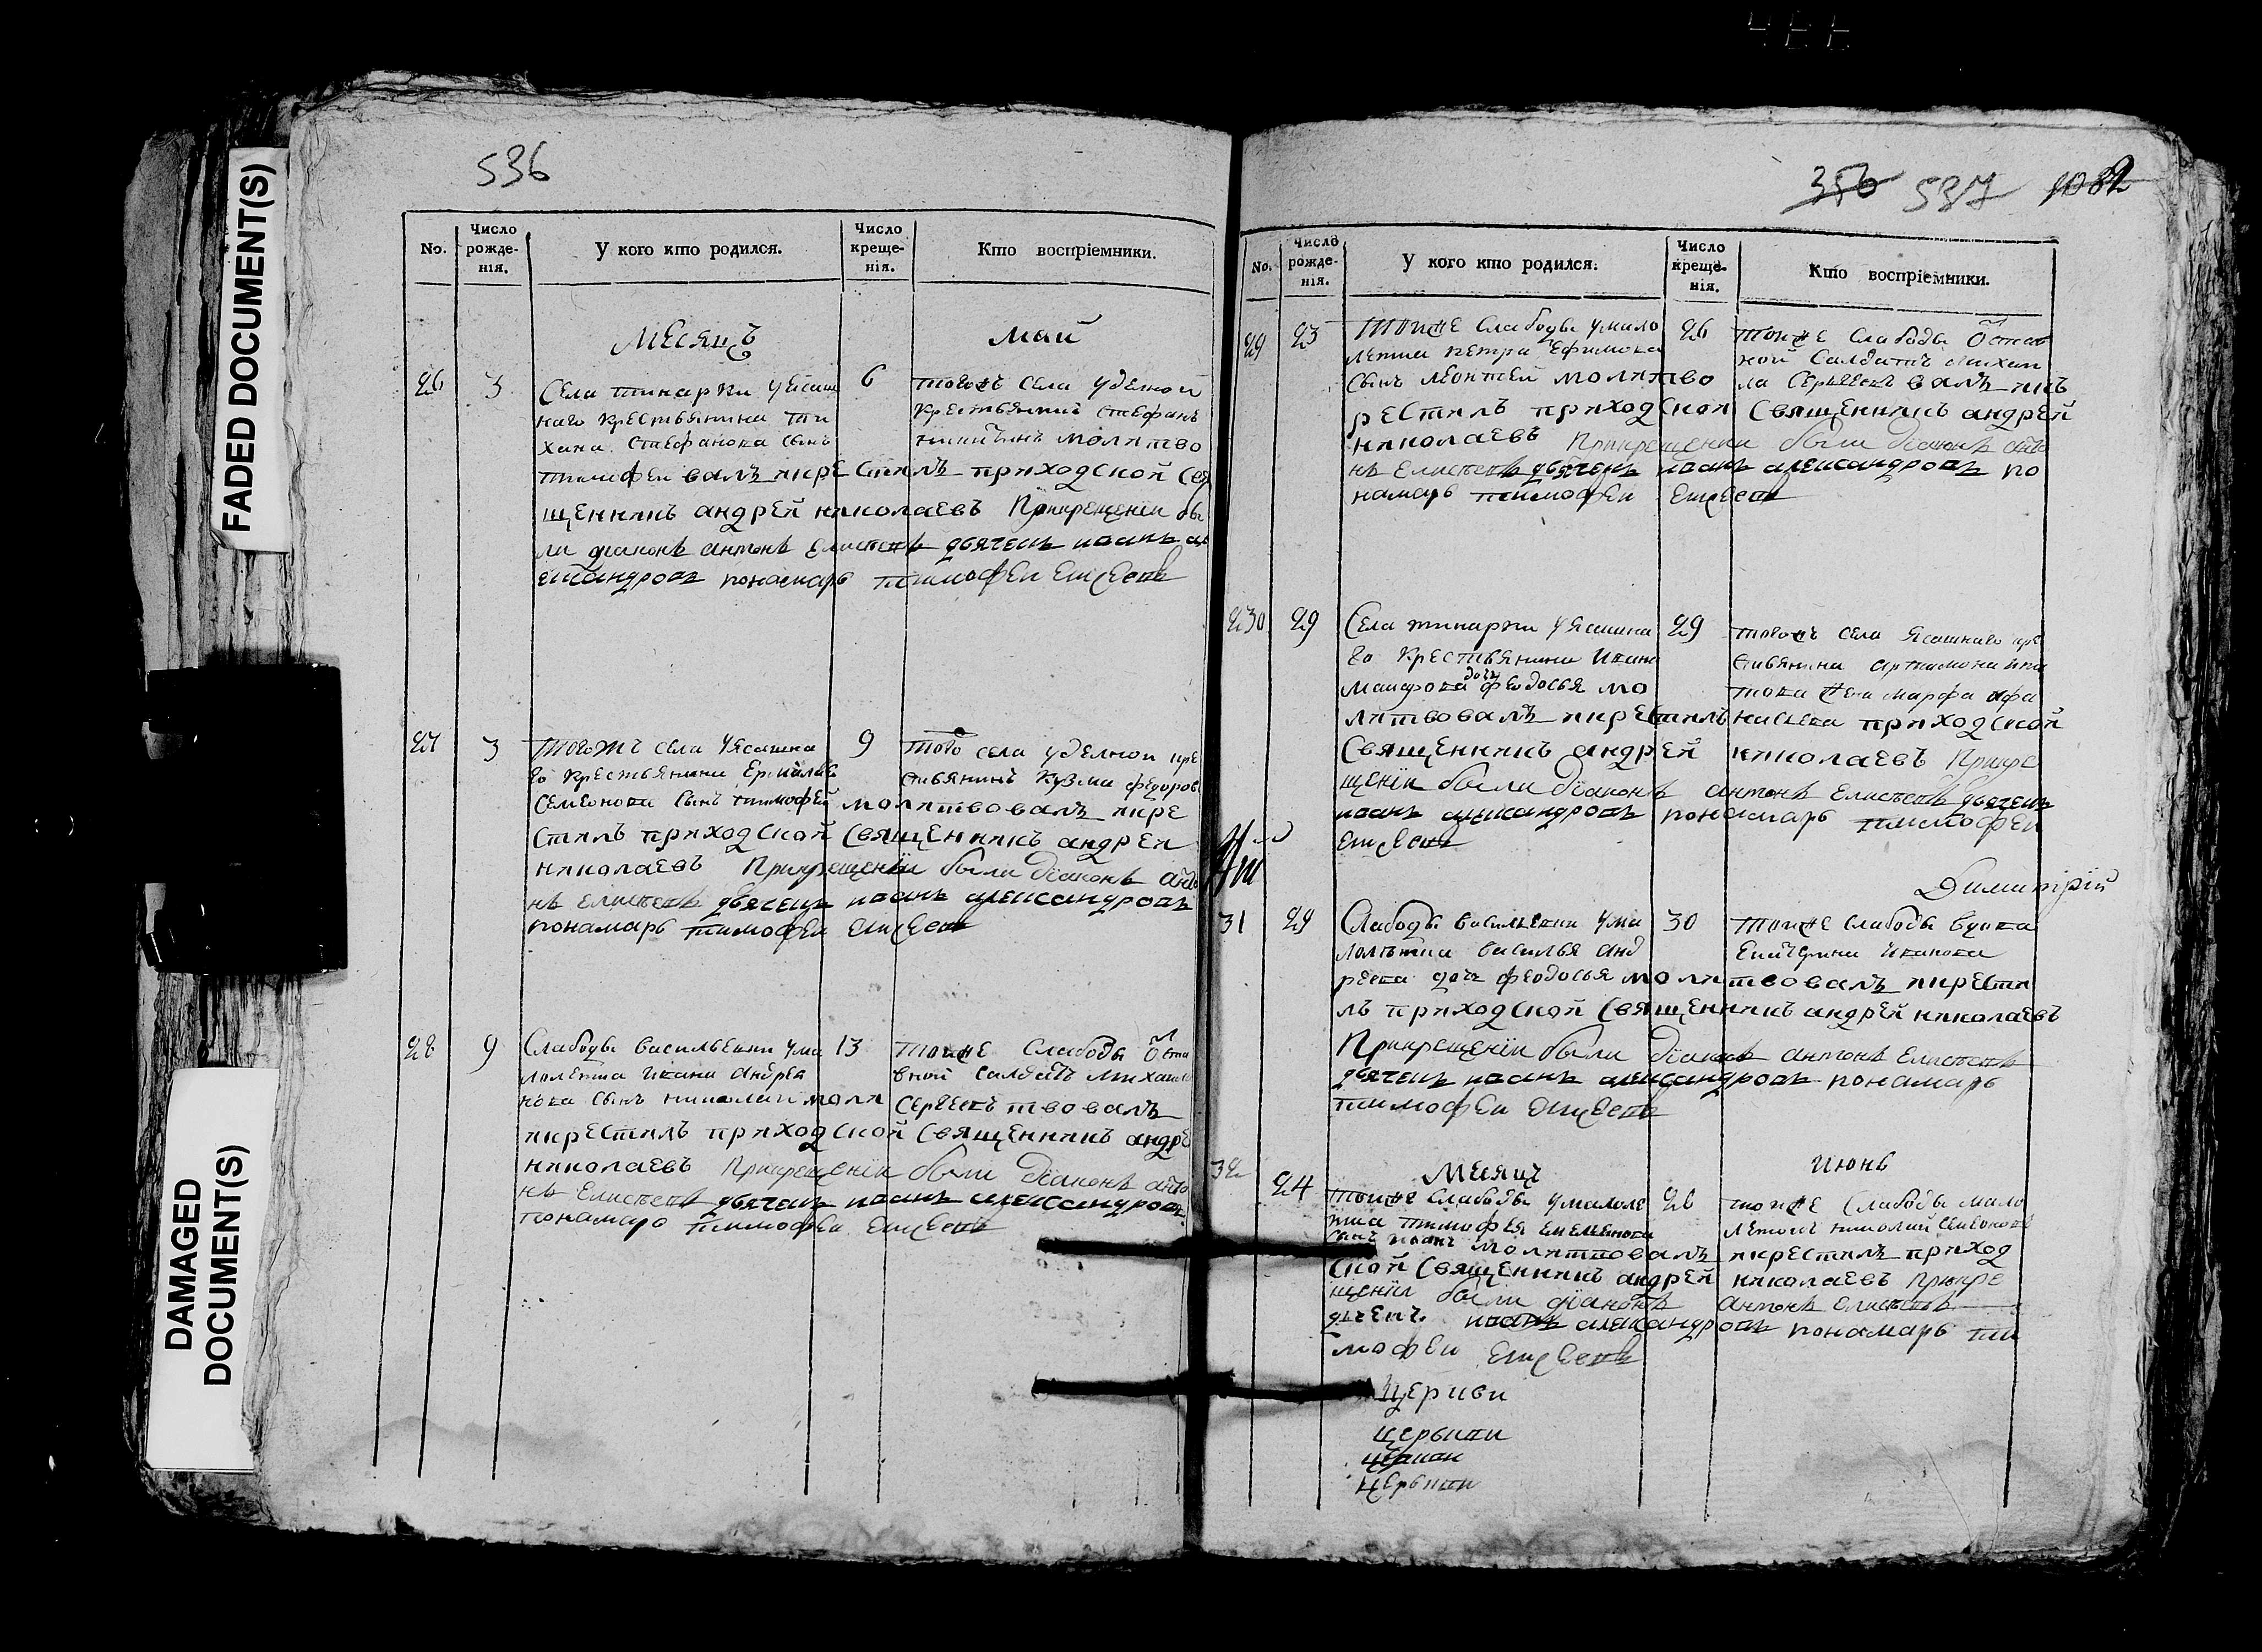 FADED DOCUMENT(S)
DAMAGED
DOCUMENT(S)
536
No.
Число
рожде-
нія.
У кого кто родился.
Число
креще-
нія.
Кто воспріемники.
Месяцъ
май
26
3
Села тинарки уясаш
наго крестьянина ти
хана стефанова сынъ
тимофеи
6
тогожъ села уделной
крестьянинъ стефанъ
никитинъ молитво
валъ икрестилъ приходской свя
щенникъ андрей николаевъ Прикрещении бы
ли диаконъ антонъ Елисеевъ дьячекъ иванъ ал
ександровъ понамарь тимофеи
27
3
тогожъ села уясашна
го крестьянина Ермила
семенова сынъ тимофей
9
того села уделнои кре
стьянинъ Кузма федоровъ
молитвовалъ икре
стилъ приходской священникъ андреи
николаевъ Прикрещении были диаконъ анто
нъ Елисеевъ дьячекъ иванъ александровъ
понамарь тимофеи
28
9
Слабоды васильевки ума
лолетка ивана андреа
нова сынъ николаи
13
тоиже слабоды Отста
вной салдатъ михаила
Сергеевъ
молитвовалъ
икрестилъ приходской священникъ андрѣ
николаевъ Прикрещении были диаконъ анто
нъ Елисеевъ дьячекъ иванъ александровъ
понамарь тимофеи
356 537 1082
No.
Число
рожде-
нія.
У кого кто родился.
Число
креще-
нія.
Кто воспріемники.
29
23
тоиже слабоды умало
летка петра Ефимова
сынъ леонтей
26
тоиже слабоды Отстав
ной Салдатъ михаи
ла Сергеевъ
молитвовалъ икъ
рестилъ приходской священникъ андрей
николаевъ Прикрещении были диаконъ анто
нъ Елисеевъ дьячекъ иванъ александровъ по
намарь тимофеи
30
29
Села тинарки уясашна
го крестьянина Ивана
дочь
феодосья
29
тогожъ села ясашнаго кре
стьянина артамона
жена марфа афа
насьева
молитвовалъ икрестилъ приходской
священникъ андрей николаевъ Прикре
щении были диаконъ антонъ Елисеевъ дьячекъ
иванъ александровъ понамарь тимофеи
Димитрій
31
29
Слабоды васильевки ума
лолетка василья анд
реева дочь феодосья
30
тоиже слабоды вдова
Екатерина Иванова
молитвовалъ икрести
лъ приходской священникъ андрей николаевъ
Прикрещении были диаконъ антонъ Елисеевъ
дьячекъ иванъ александровъ понамарь
тимофеи
Месяцъ
июнь
32
24
тоиже слабоды умалоле
тка тимофея емельянова
сынъ иванъ
26
тоиже слабоды мало
летокъ николай семеновъ
молитвовалъ икрестилъ приход
ской священникъ андрей николаевъ Прикре
щении были диаконъ антонъ Елисеевъ
дьячекъ иванъ александровъ понамарь ти
мофеи
Церкви
церькви
церькви